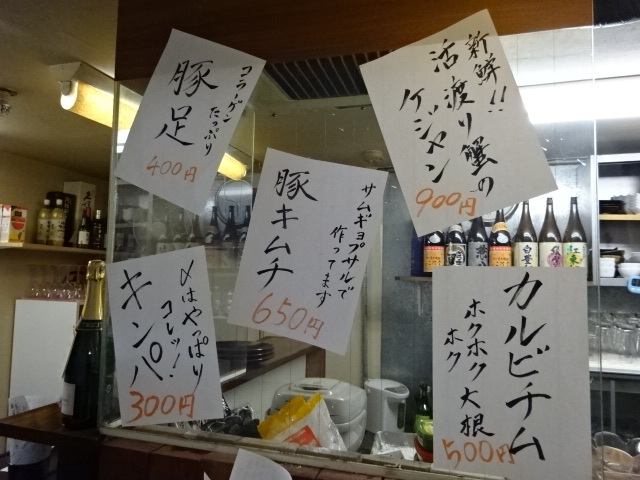 コラーゲン
たっぷり
豚足
400円
新鮮!!
活渡り蟹の
ケジャン
900円
サムギョプサルで
作ってます
豚キムチ
650円
〆はやっぱり
コレッ!
キンパ
300円
カルビチム
ホクホク大根
ホク
500円
白豊
紅東